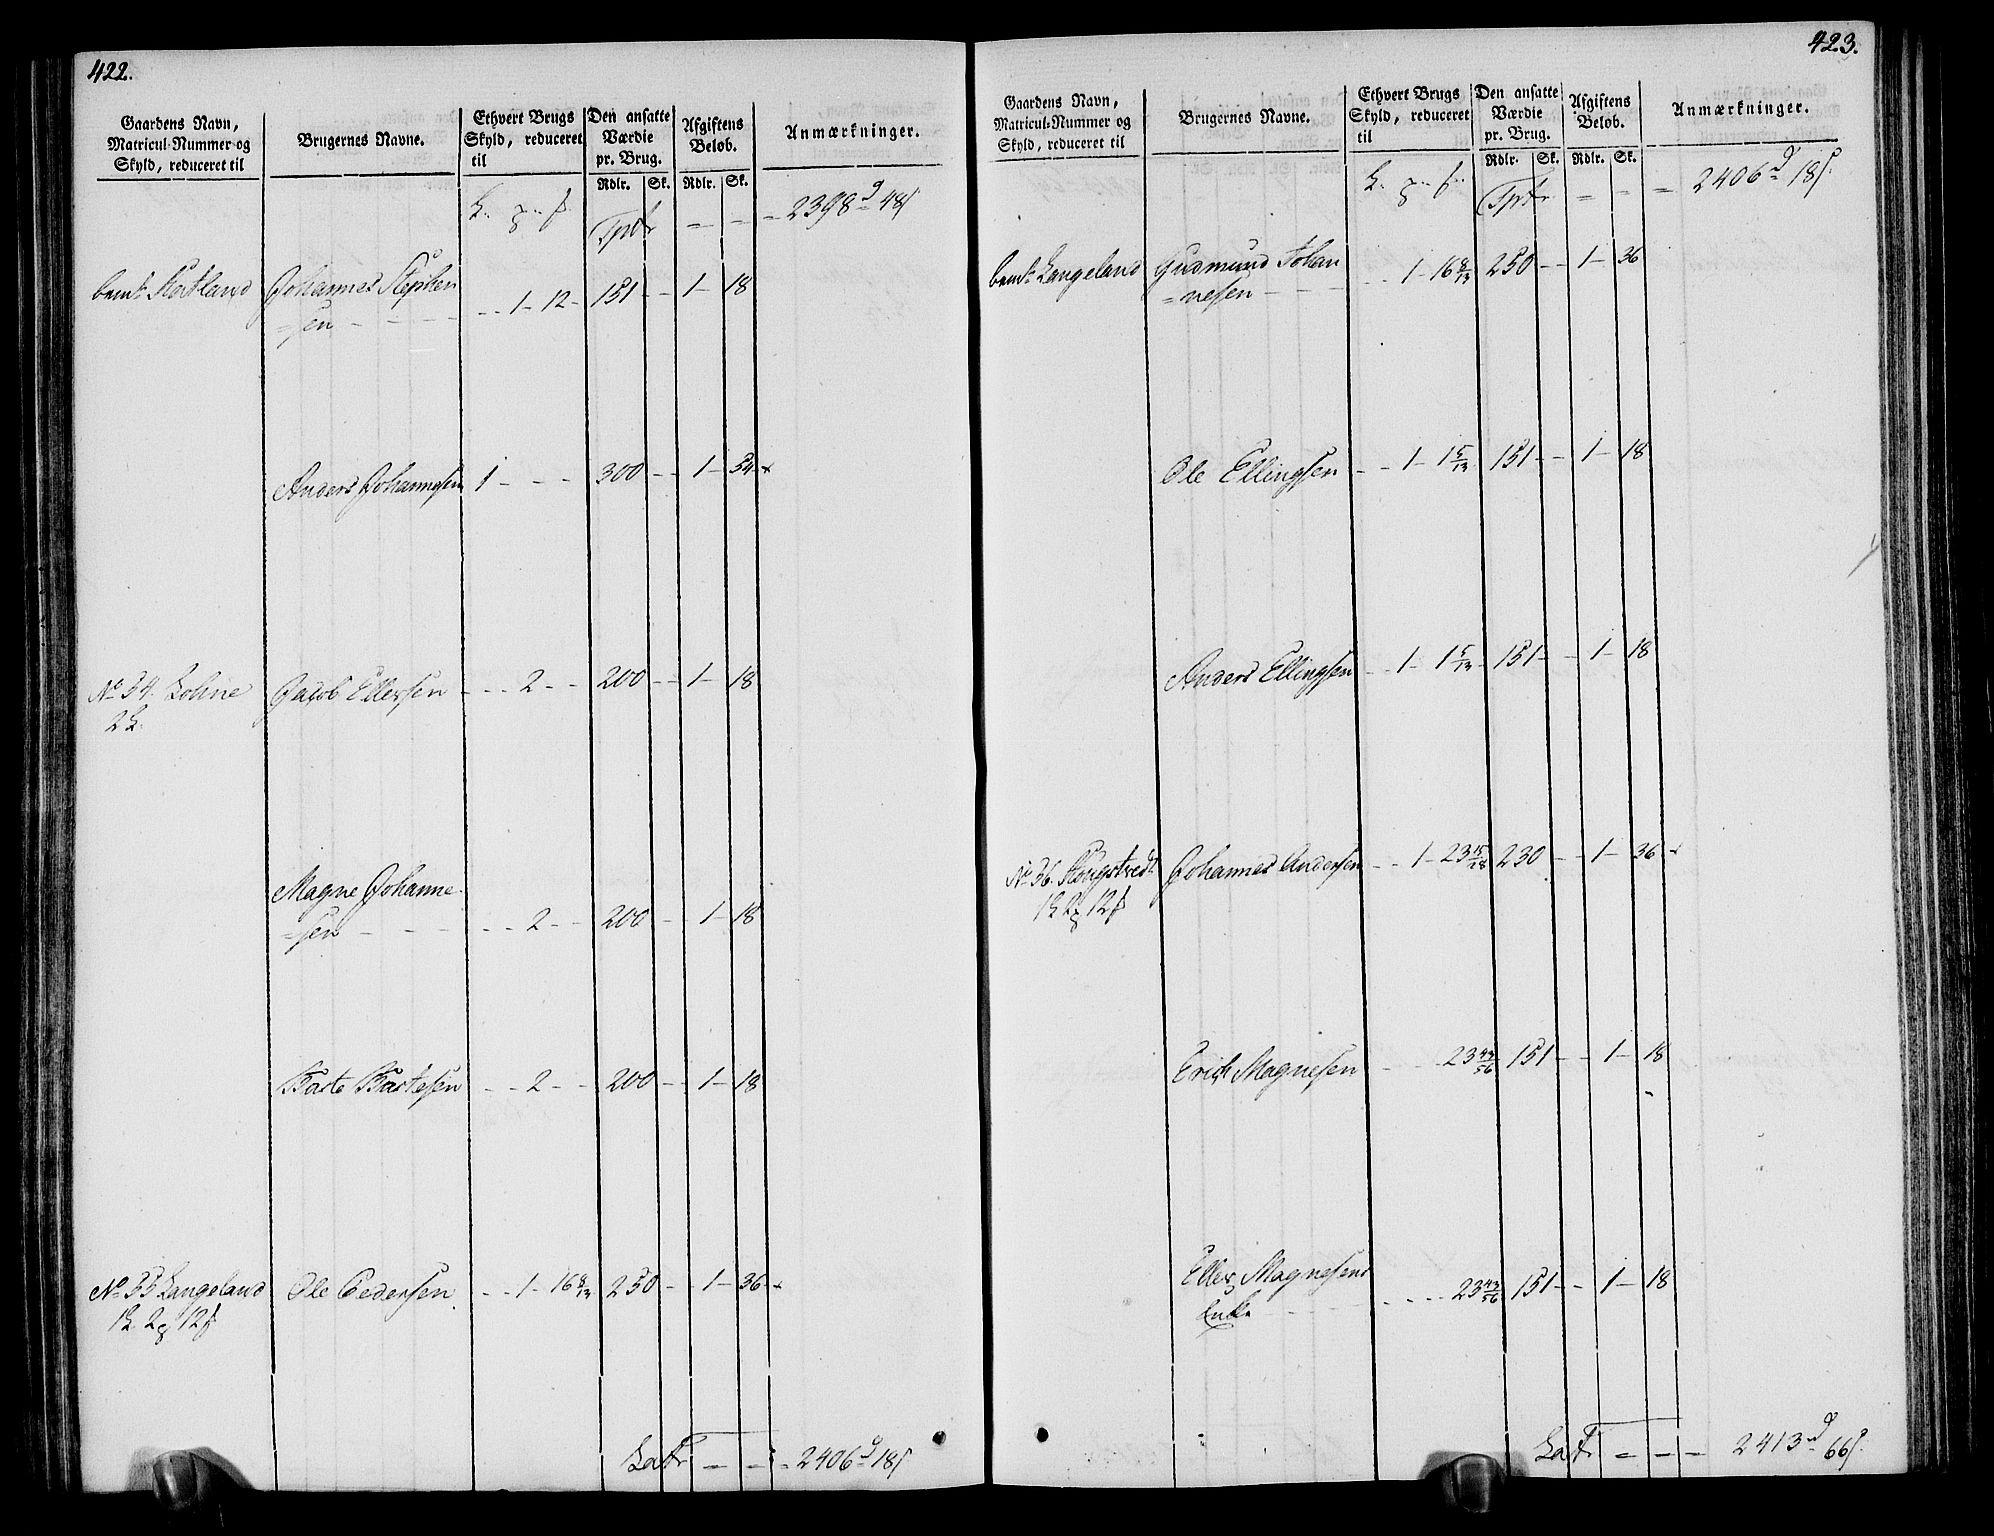 422.
Gaardens Navn, Matricul-Nummer og Skyld, reduceret til
Brugernes Navne.
Ethvert Brugs Skyld, reduceret til
Den ansatte Værdie pr. Brug.
Afgiftens Beløb.
Anmærkninger.
Rdlr. Sk. Rdlr. Sk.
Tprt = = = 2398 48
Johannes Stephen
=sen - - - 1 - 12 - 151 - - 1 - 18
Anders Johannesen 1 - - - 300 - - 1 - 54
No 34. Lohne Jacob Ellersen - - - 2 - - 200 - - 1 - 18
Magne Johanne
=sen - - - - 2 - - 200 - - 1 - 18
- - 2 - - 200 - - 1 - 18
No 35 Langeland Ole Pedersen - - 1 - 16 8/13 250 - - 1 - 36
Latr = = = 2406 18
423.
Gaardens Navn, Matricul-Nummer og Skyld, reduceret til
Brugernes Navne.
Ethvert Brugs Skyld, reduceret til
Den ansatte Værdie pr. Brug.
Afgiftens Beløb.
Anmærkninger.
Rdlr. Sk. Rdlr. Sk.
Tprt = = = 2406 18
bemt Langeland Gudmund Johan
=nesen - - - - 1 - 16 8/13 250 - - 1 - 36
Ole Ellingsen - - 1 - 1 5/13 151 - - 1 - 18
Anders Ellingsen - - 1 - 1 5/13 151 - - 1 - 18
No 36. Johannes Andersen - - 1 - 23 15/28 230 - - 1 - 36
Erich Magnesen - - - 23 43/56 151 - - 1 - 18
Ellers Magnesens
Enke - - - - 23 43/56 151 - - 1 - 18
Latr = = = 2413 66